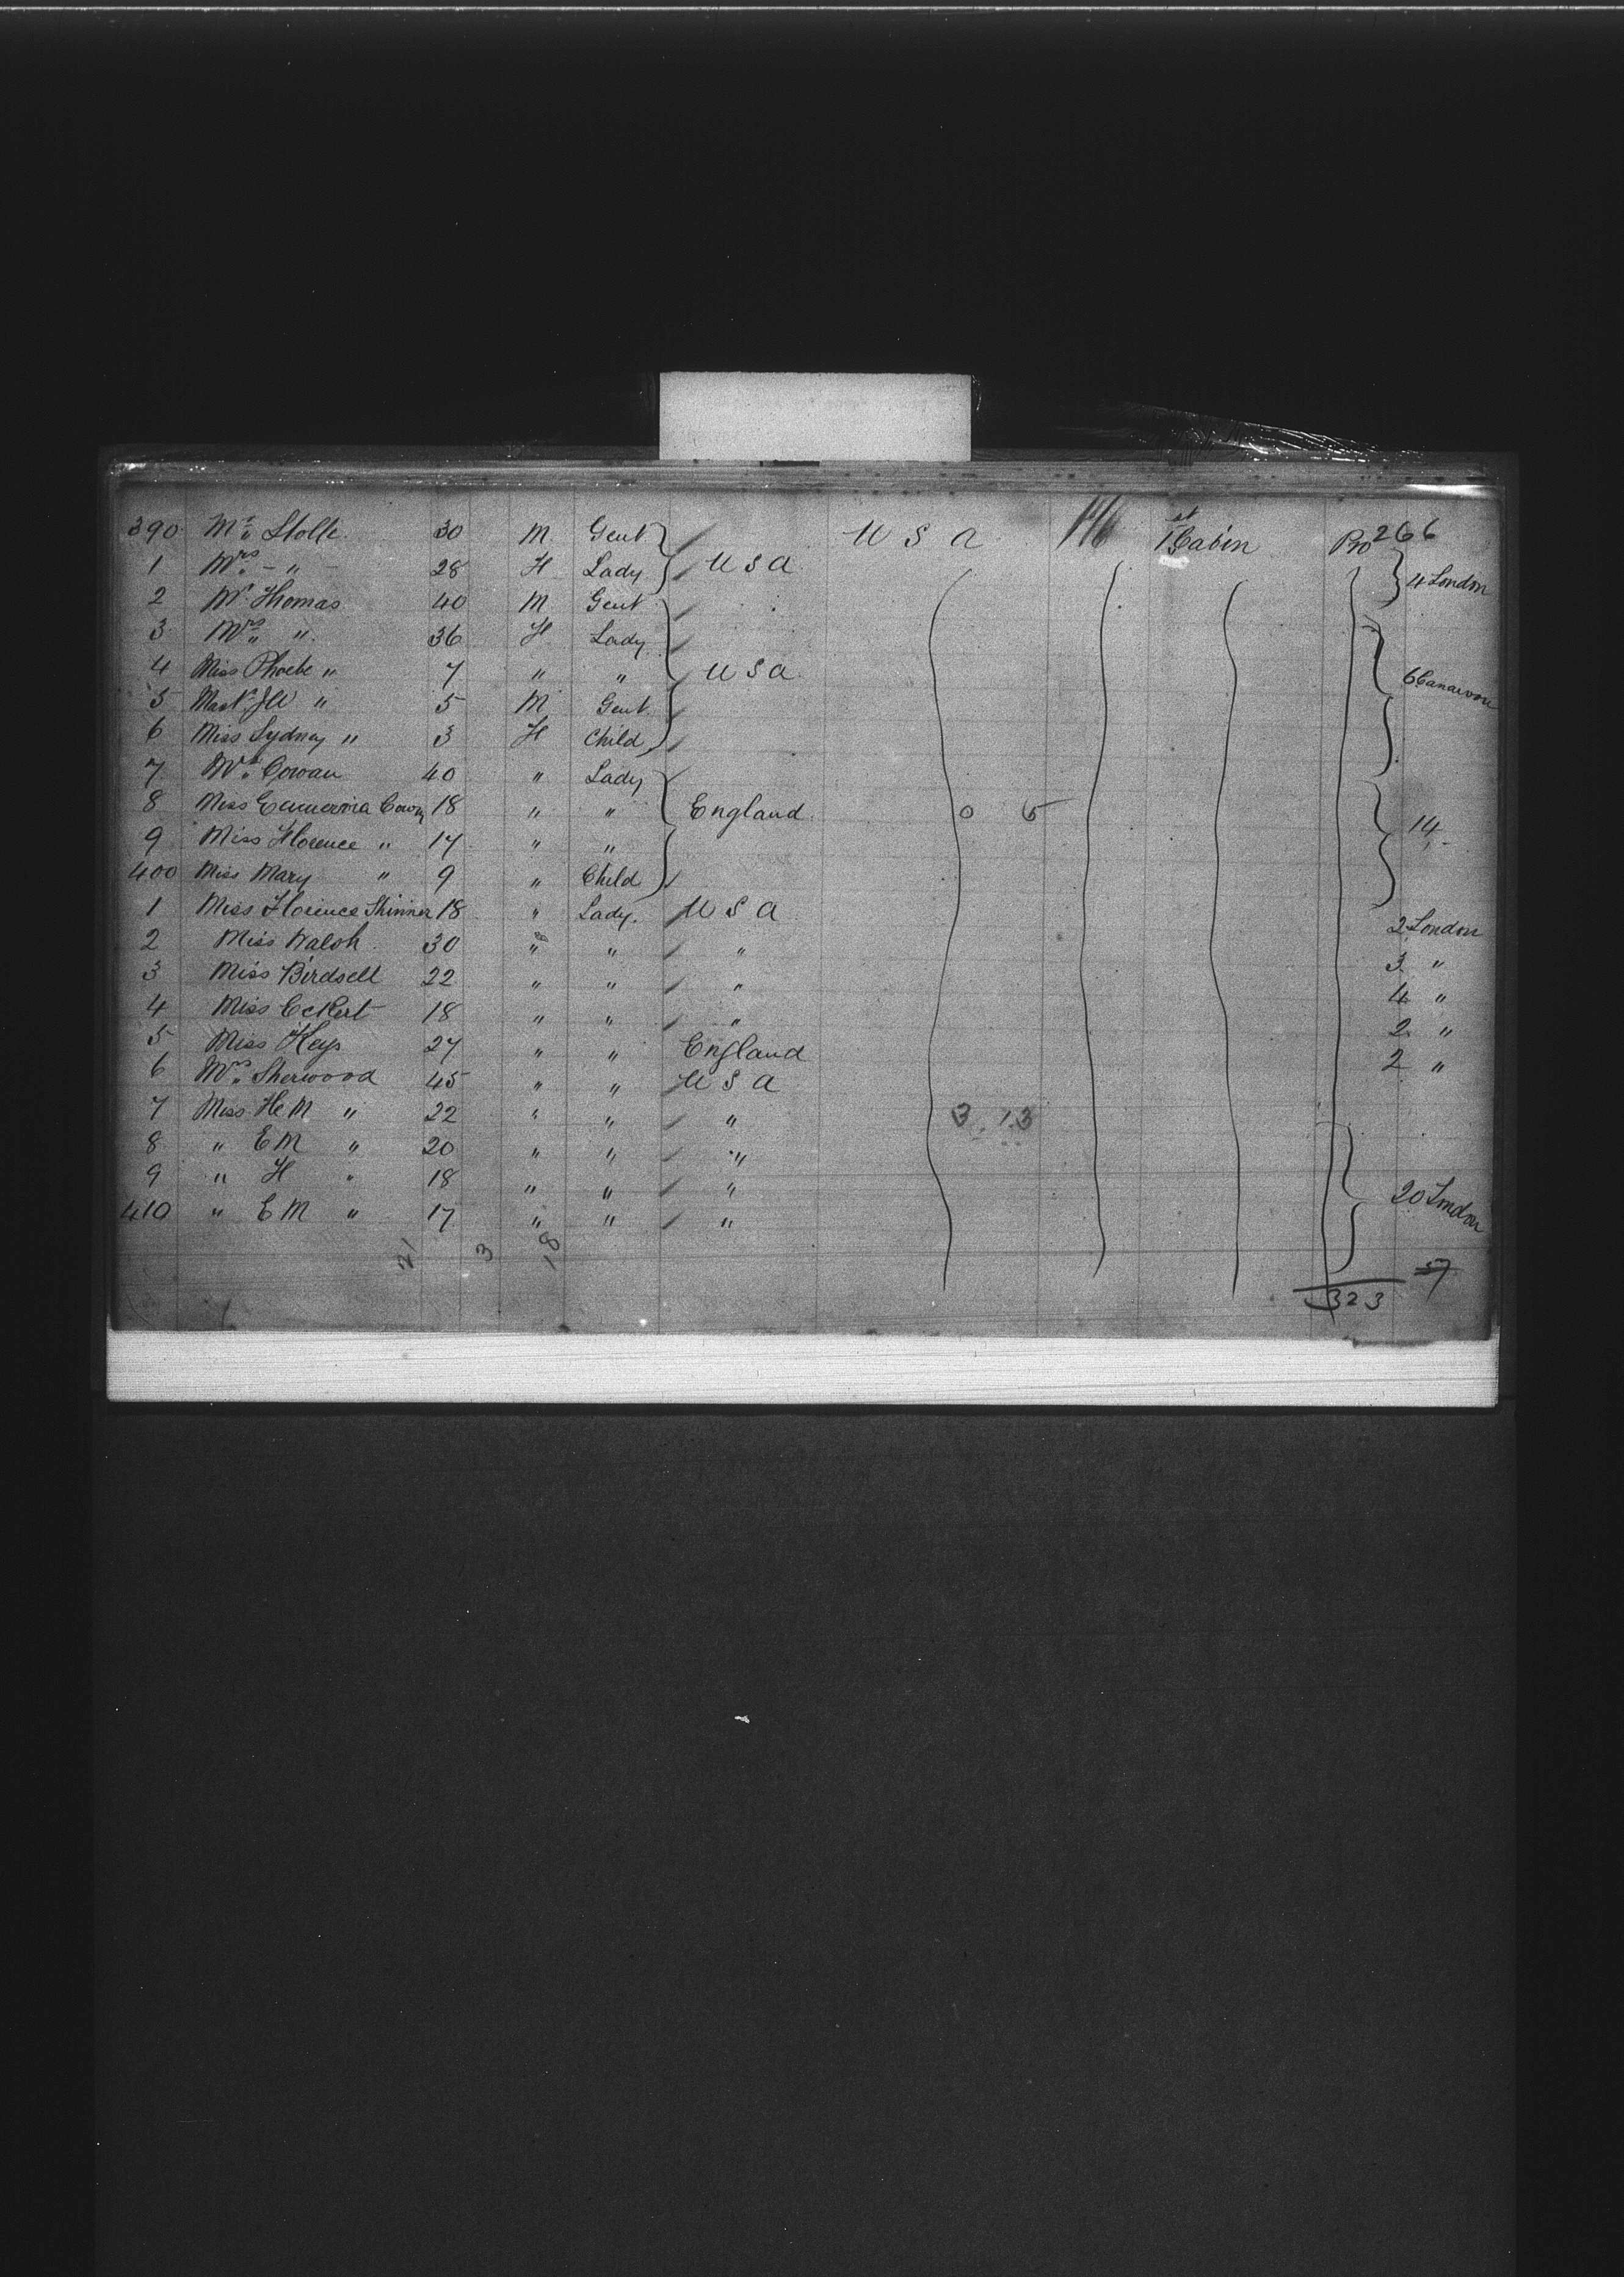 390 Mr Stolle 30 M Gent U S A 1st Cabin Pro 266
1 Mrs - " - 28 F Lady U S A 4 London
2 Mr Thomas 40 M Gent
3 Mrs " 36 F Lady
4 Miss Phoebe " 7 " " U S A 6 Canarvon
5 Mastr J W " 5 M Gent
6 Miss Sydney " 3 F Child
7 Mrs Cowan 40 " Lady
8 Miss Cowan 18 " " England 0 5
9 Miss Florence " 17 " " 14
400 Miss Mary " 9 " Child
1 Miss Florence Skinner 18 " Lady. U S A 2 London
2 Miss Walsh 30 " " " 3 "
3 Miss Birdsell 22 " " " 4 "
4 Miss Eckert 18 " " " 2 "
5 Miss Keys 27 " " England 2 "
6 Mrs Sherwood 45 " " U S A
7 Miss H M " 22 " " " 3. 13
8 " E M " 20 " " "
9 " H " 18 " " "
410 " E M " 17 " " " 20 London
21 3 18
57
323